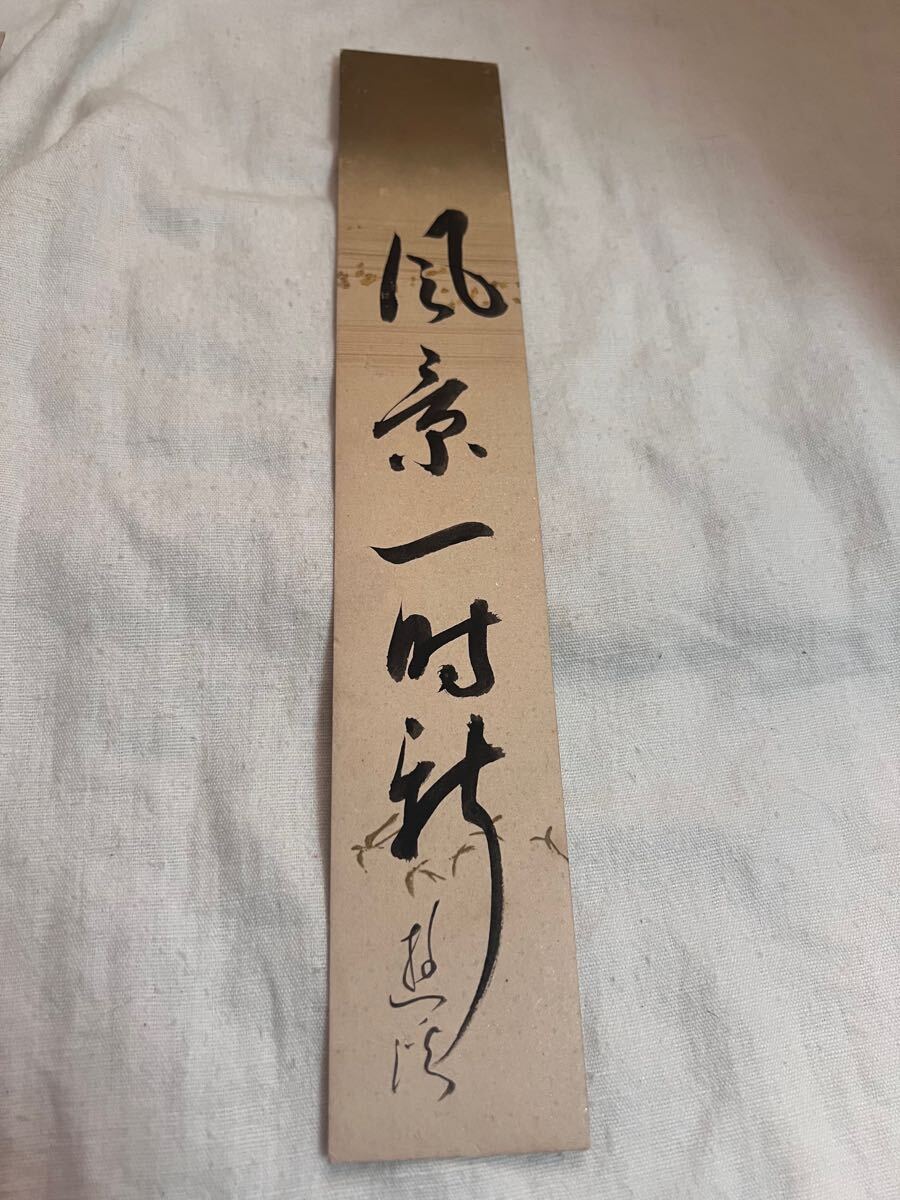 風景一時新